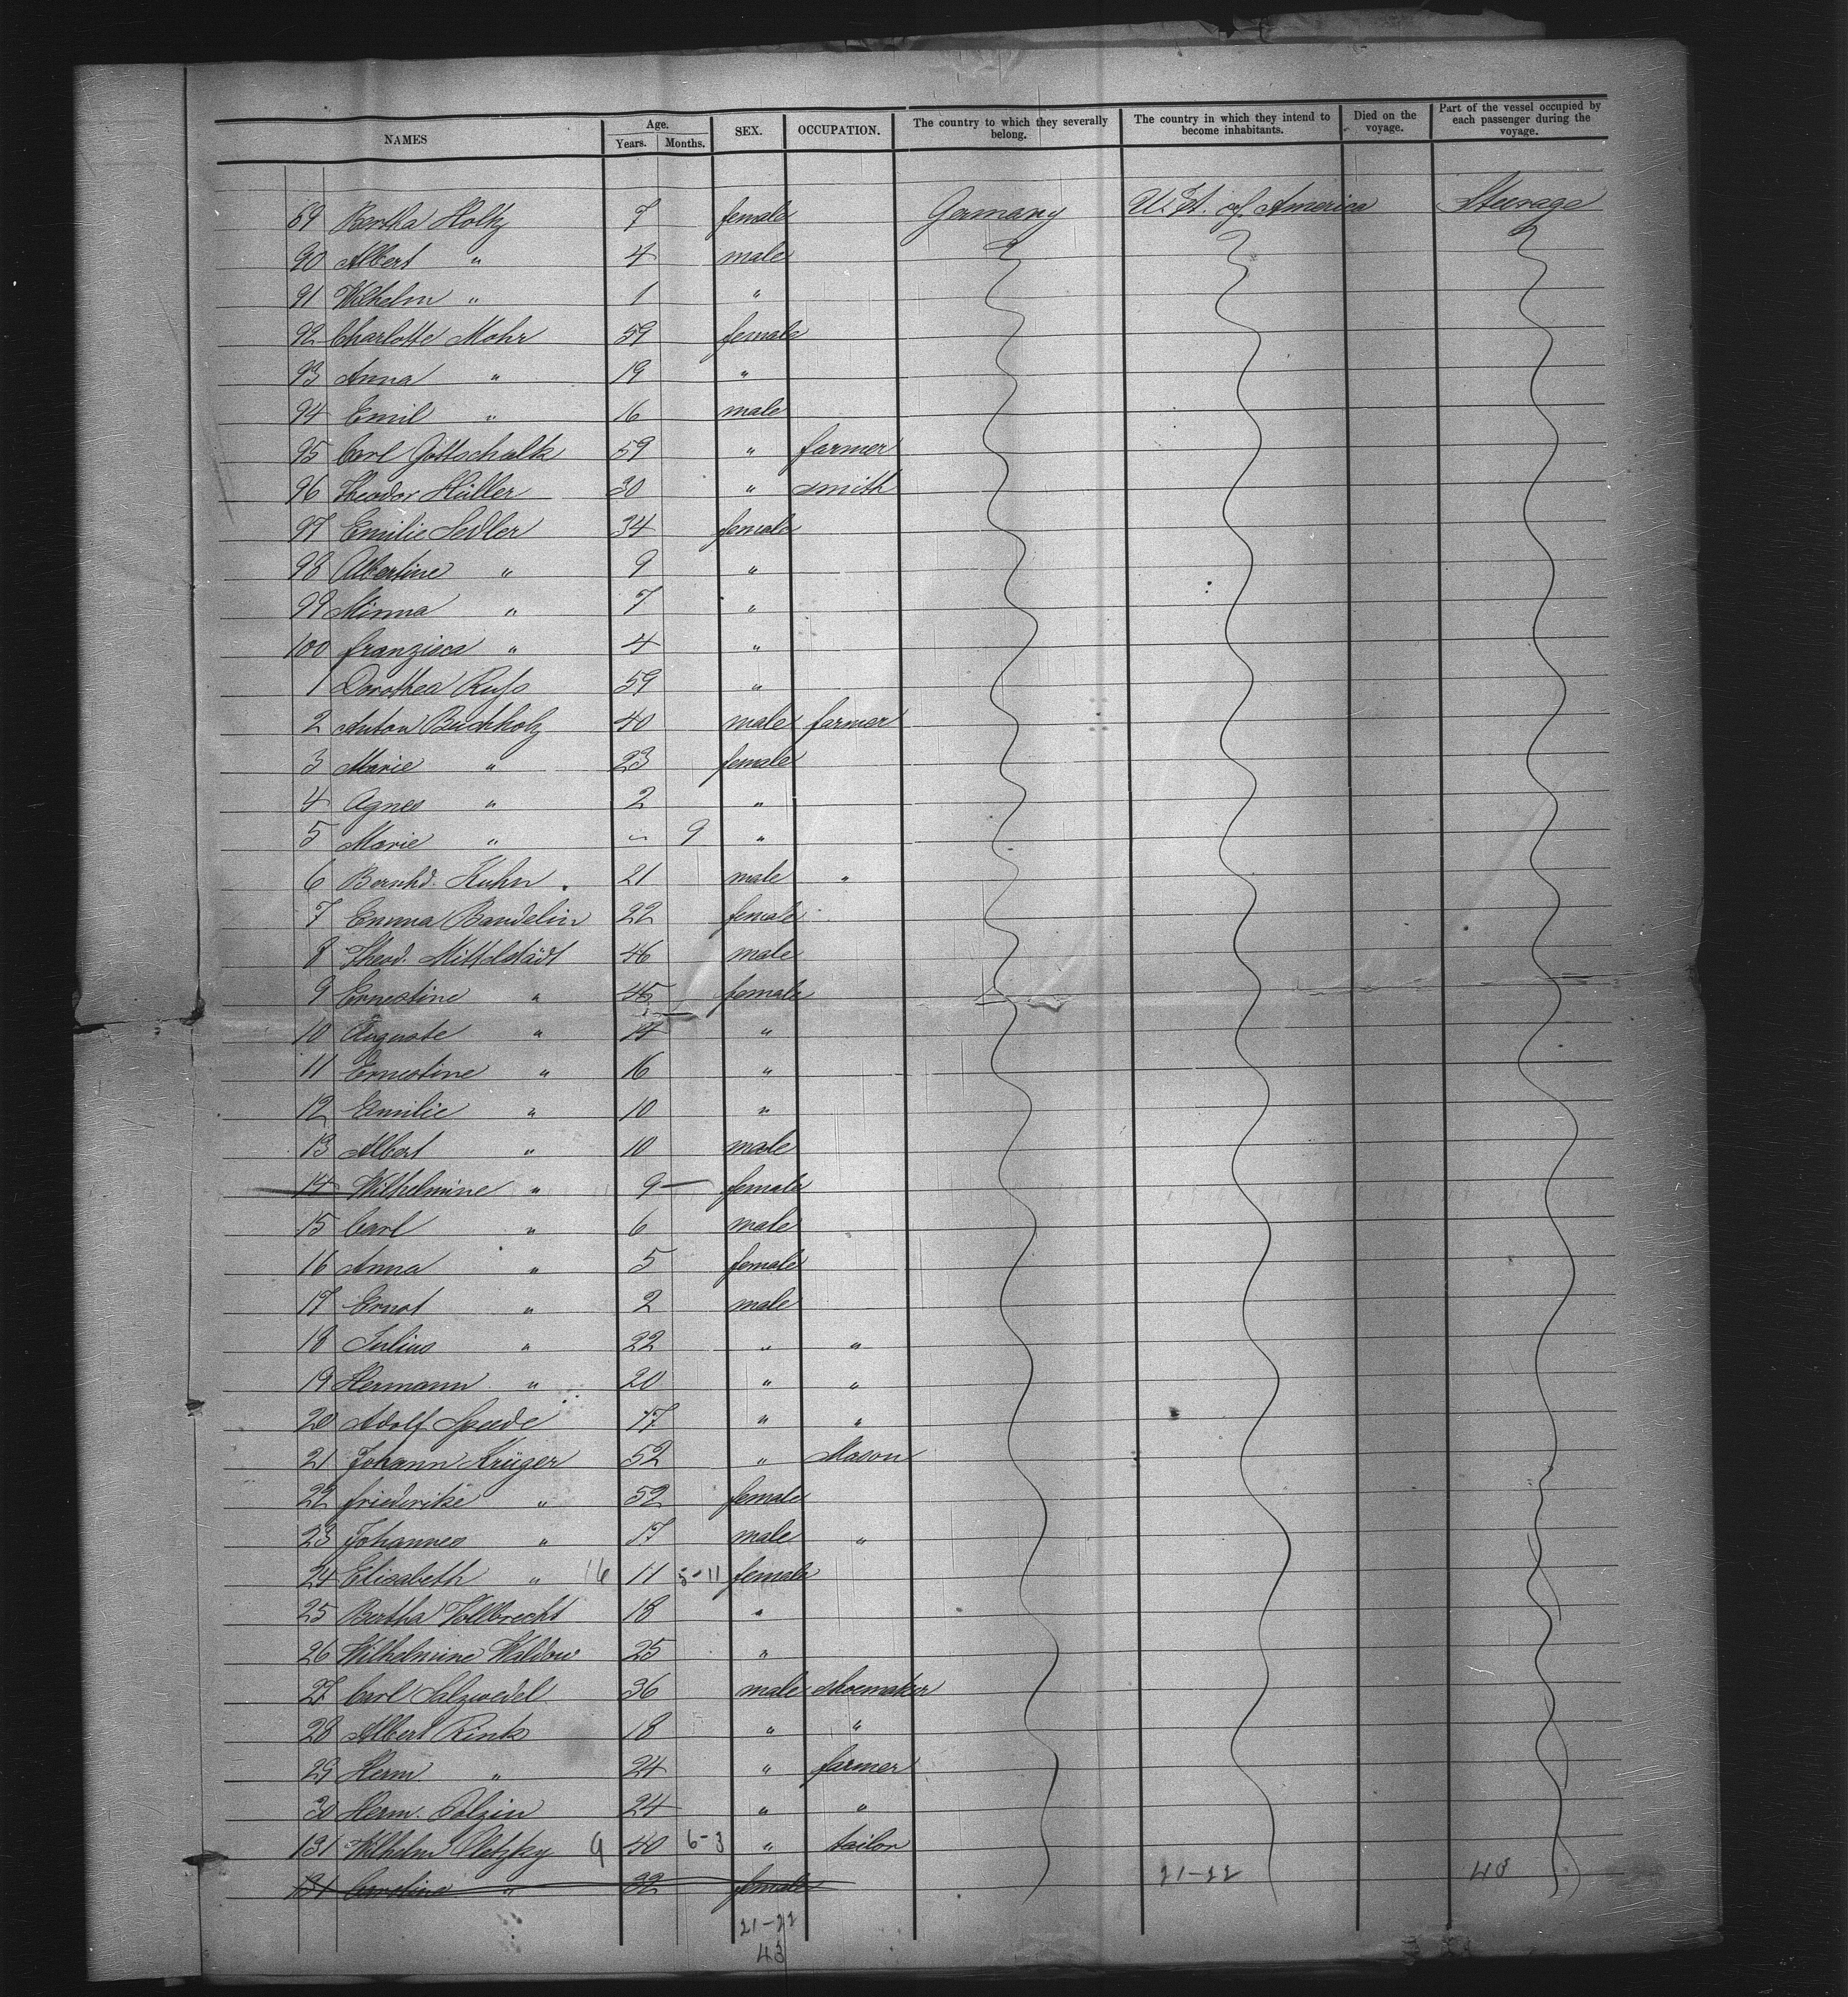 NAMES Age. Years. Months. SEX. OCCUPATION. The country to which they severally belong. The country in which they intend to become inhabitants. Died on the voyage. Part of the vessel occupied by each passenger during the voyage.
89 Bertha Holtz 7 female Germany U. St. of America Steerage
90 Albert " 4 male
91 Wilhelm " 1 "
92 Charlotte Mohr 59 female
93 Anna " 19 "
94 Emil " 16 male
95 Carl Gottschalk 59 " farmer
96 Theodor Müller 30 " smith
97 Emilie Sedler 34 female
98 Albertine " 9 "
99 Minna " 7 "
100 Franzisca " 4 "
1 Dorothea 59 "
2 Anton Buchholz 40 male farmer
3 Marie " 23 female
4 Agnes " 2 "
5 Marie " - 9 "
6 Bernhd. Kuhn 21 male "
7 Emma Bandelin 22 female
8 Theod. Mittelstädt 46 male
9 Ernestine " 45 female
10 Auguste " "
11 Ernestine " 16 "
12 Emilie " 10 "
13 Albert " 10 male
14 Wilhelmine " 9 female
15 Carl " 6 male
16 Anna " 5 female
17 Ernst " 2 male
18 Julius " 22 " "
19 Hermann " 20 " "
20 Adolf 17 " "
21 Johann Krüger 52 " Mason
22 Friederike " 52 female
23 Johannes " 17 male "
24 Elisabeth " 16 11 5-11 female
25 Bertha Vollbrecht 18 "
26 Wilhelmine Waldow 25 "
27 Carl Salzwedel 36 male shoemaker
28 Albert Rink 18 " "
29 Herm. " 24 " farmer
30 Herm. Polzin 24 " "
131 Wilhelm Oletzky 9 40 6-3 " tailor
131 Carolina " 32 female
21-22 43
21-22
43